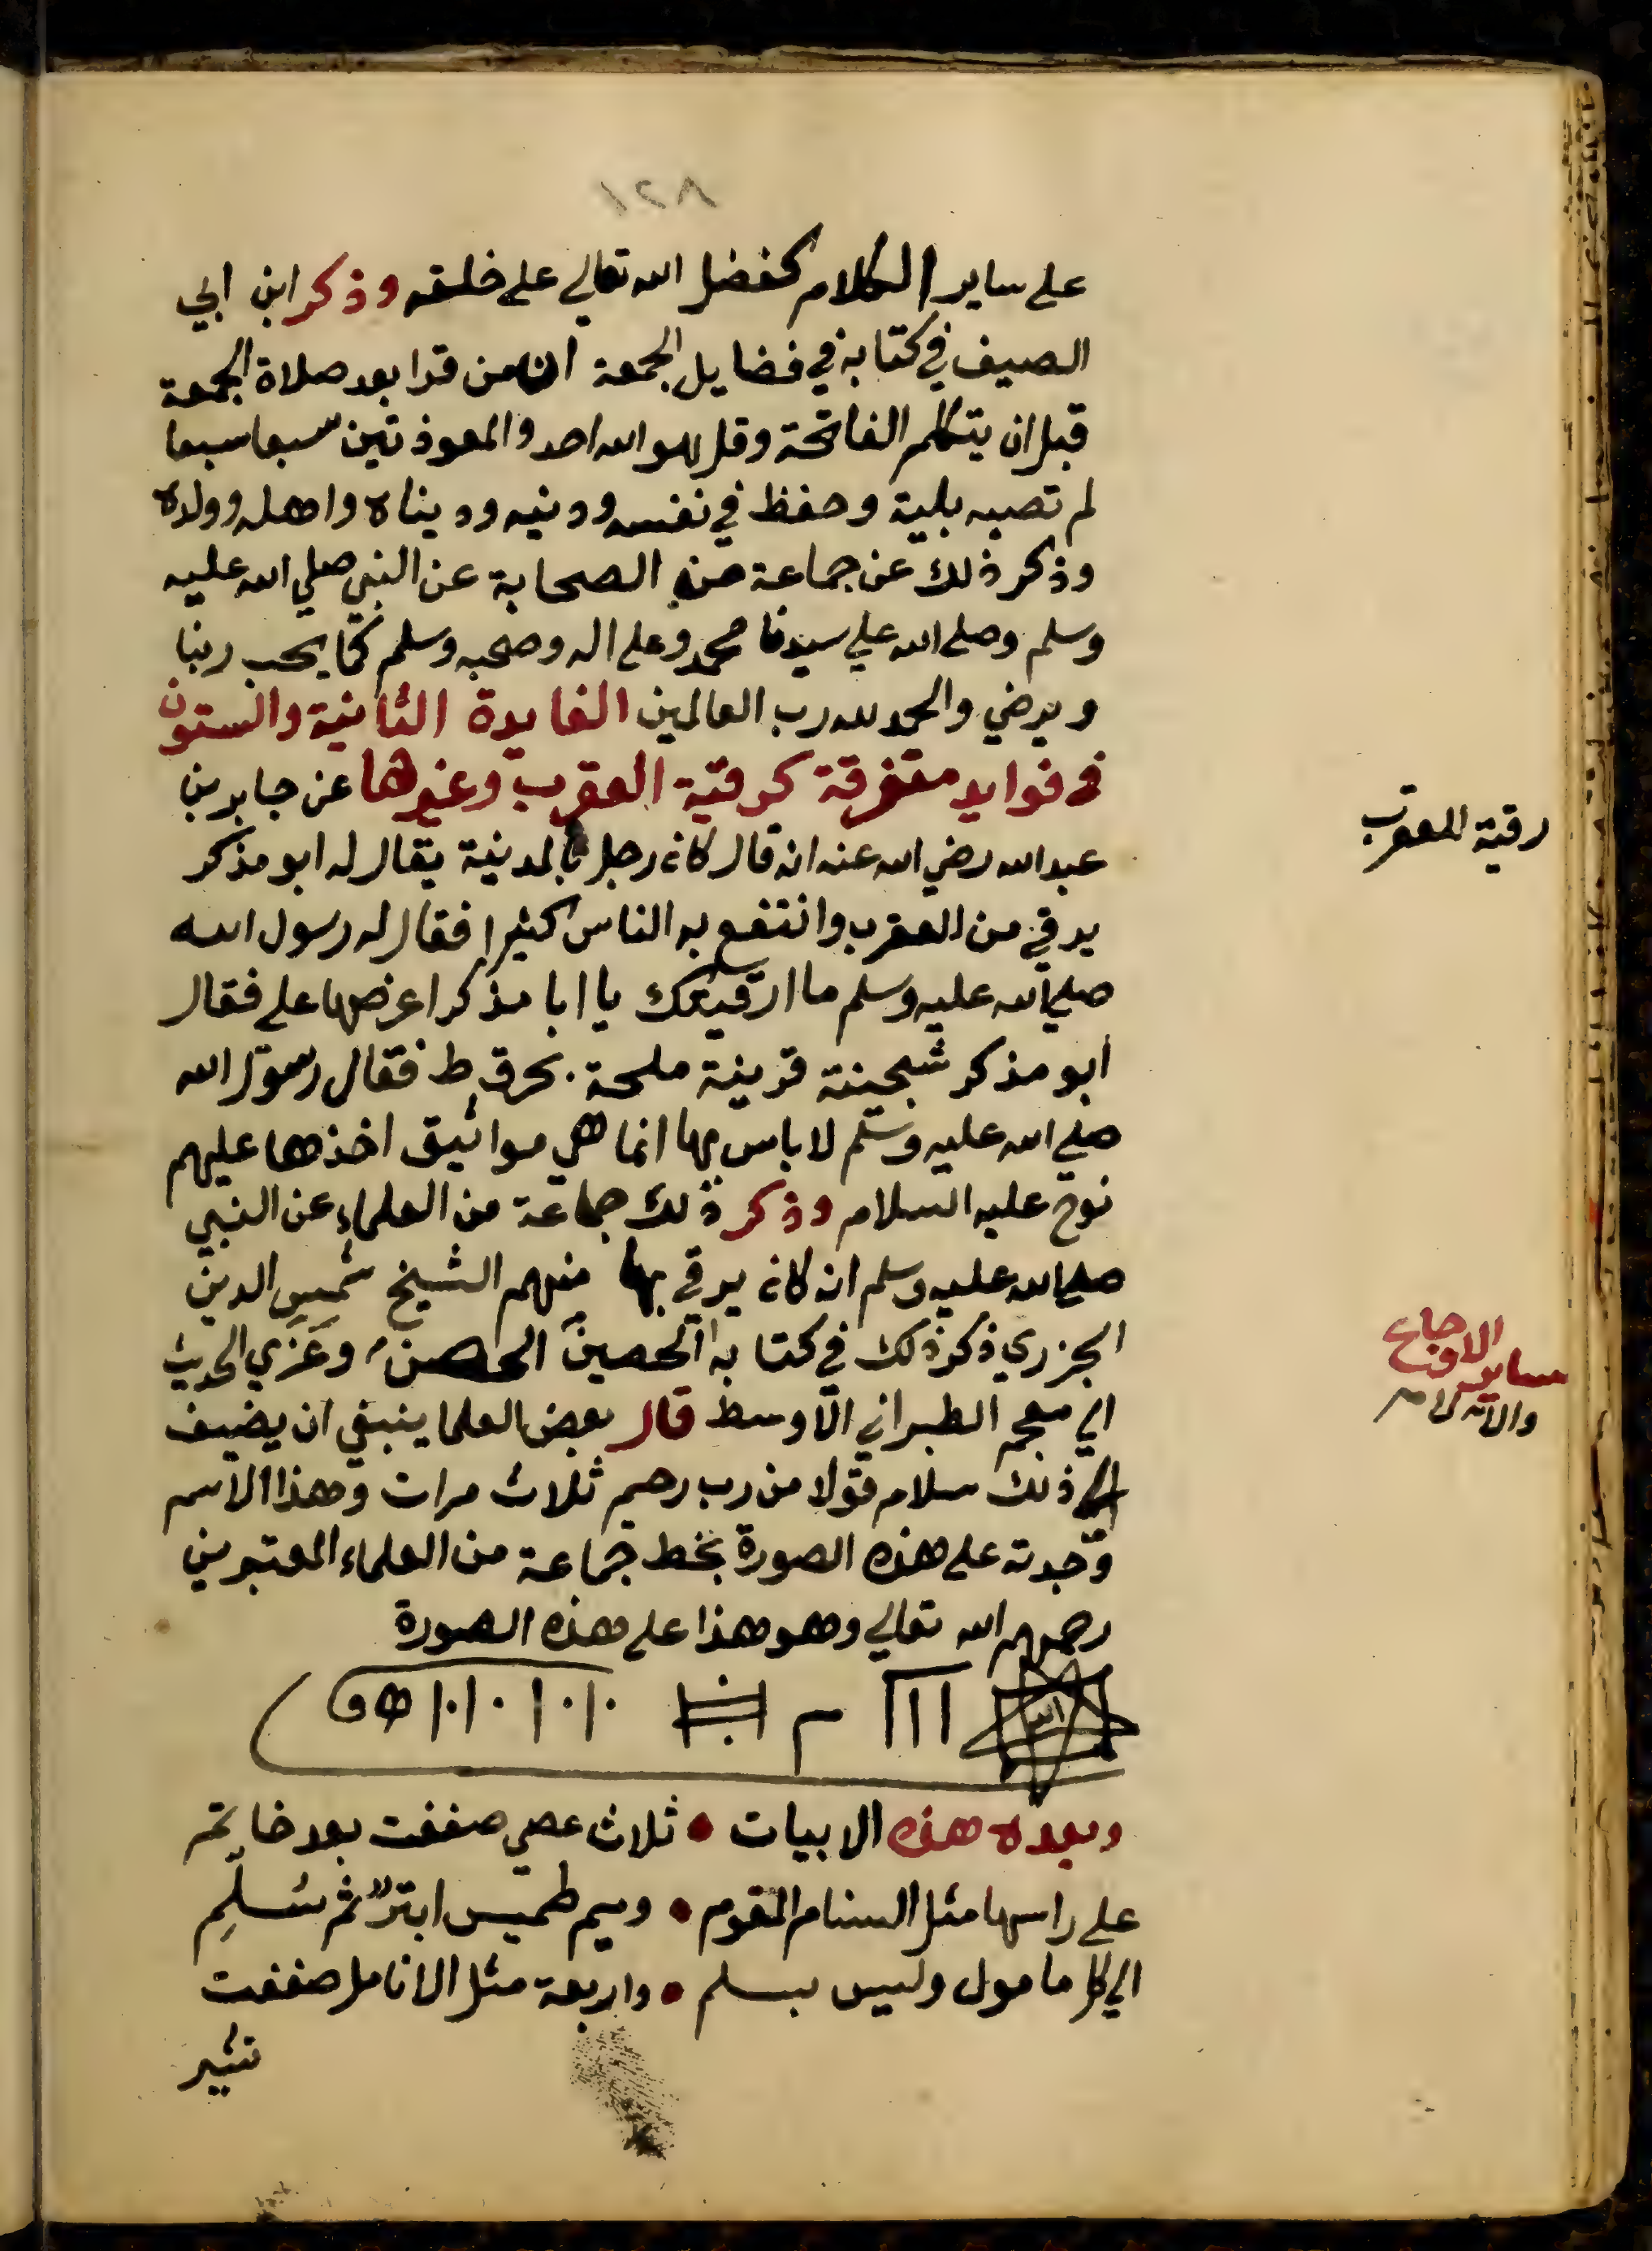 ١٢٨
على ساير الكلام كفضل الله تعالي على خلقه وذكر ابن ابي
الصيف في كتابه في فضايل الجمعة ان من قرا بعد صلاة الجمعة
قبل ان يتكلم الفاتحة وقل هو الله احد والمعوذتين سبعا سبعا
لم تصبه بلية وحفظ في نفسه ودنيه وديناه واهله وولده
وذكر ذلك عن جماعة من الصحابة عن النبي صلي الله عليه
وسلم وصلى الله علي سيدنا محمد وعلى اله وصحبه وسلم كما يحب ربنا
ويرضي والحمد لله رب العالمين الفايدة الثانية والستون
في فوايد متفرقة كرقية العقرب وغيرها عن جابر بن
رقية العقرب
عبدالله رضي الله عنه انه قال كان رجل بالمدينة يقال له ابو مذكر
يرقي من العقرب وانتفع به الناس كثيرا فقال له رسول الله
صلي الله عليه وسلم ما ارقيتك يا ابا مذكر اعرضها على فقال
ابو مذكر شجينة قرينة ملحة بحر قط فقال رسول الله
صلي الله عليه وسلم لا باس بها انما هي مواثيق اخذها عليهم
نوح عليه السلام وذكر ذلك جماعة من العلماء عن النبي
صلى الله عليه وسلم انه كان يرقي بها منهم الشيخ شمس الدين
الجزري ذكر ذلك في كتابه الحصين الحصن وعَزَي الحديث
ساير الاوجاع
والالام
الي معجم الطبراني الاوسط قال بعض العلما ينبغي ان يضيف
الي ذلك سلام قولا من رب رحيم ثلاث مرات وهذا الاسم
وجدته على هذه الصورة بخط جماعة من العلماء المعتبرين
رحمهم الله تعالي وهو هذا على هذه الصورة
الله
وبعده هذه الابيات • ثلاث عصي صففت بعد خاتم
على راسها مثل السنام المقوم • وميم طميس ابتر ثم سُلّمِ
الي كل مامول وليس بسلم • واربعة مثل الانامل صففت
تشير